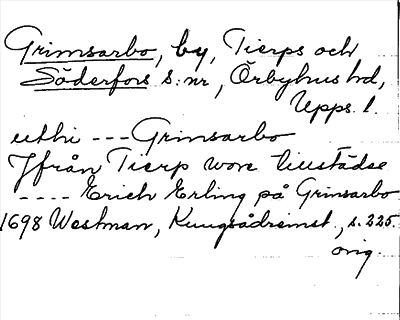 Grimsarbo, by, Tierps och
Söderfors s:nr, Örbyhus hd,
Upps. l.
uthi --- Grimsarbo
Jfrån Tierp wore tillstädse
---- Erich Erling på Grimsarbo
1698 Westman, Kungsådremst., s. 225.
orig.